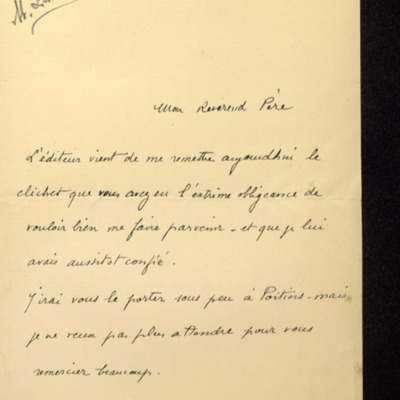 Mon Révérend Père
L'éditeur vient de me remettre aujourd'hui le
clichet que vous avez eu l'extrême obligeance de
vouloir bien me faire parvenir - et que je lui
avais aussitot confié.
J'irai vous le porter sous peu à Poitiers - mais
je ne veux pas plus attendre pour vous
remercier beaucoup.